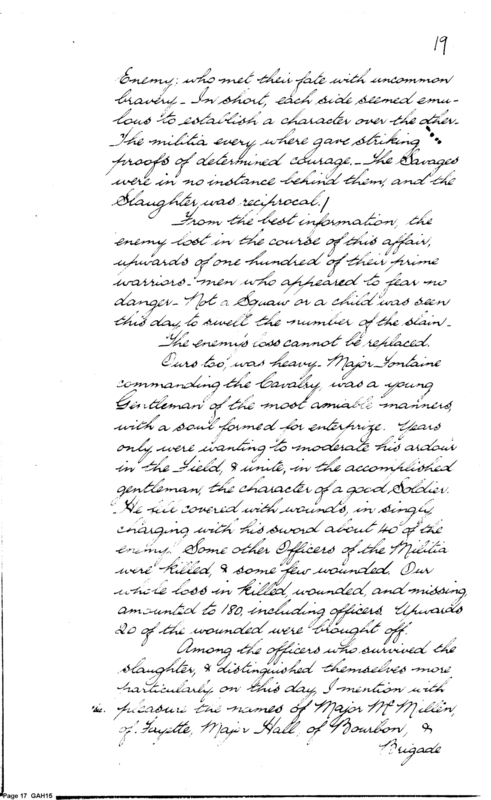 19
Enemy: who met their fate with uncommon
bravery - In short, each side seemed emu-
lous to establish a character over the other.
The militia every where gave striking
proofs of determined courage. - The Savages
were in no instance behind them, and the
Slaughter, was reciprocal./
From the best information, the
enemy lost in the course of this affair,
upwards of one hundred of their prime
warriors - men who appeared to fear no
danger - Not a Squaw or a child was seen
this day, to swell the number of the slain -
The enemy's loss cannot be replaced.
Ours too, was heavy - Major Fontaine
commanding the Cavalry, was a young
Gentleman of the most amiable manners,
with a soul formed for enterprize. Years
only were wanting to moderate his ardour
in the Field, & unite, in the accomplished
gentleman, the character of a good Soldier.
He fell covered with wounds, in singly
charging with his sword about 40 of the
enemy. Some other Officers of the Militia
were killed, & some few wounded. Our
whole loss in killed, wounded, and missing
amounted to 180, including officers. Upwards
20 of the wounded were brought off.
Among the officers who survived the
slaughter, & distinguished themselves more
particularly on this day, I mention with
pleasure the names of Major McMillen,
of Fayette, Major Hall, of Bourbon, &
Brigade
Page 17 GAH15